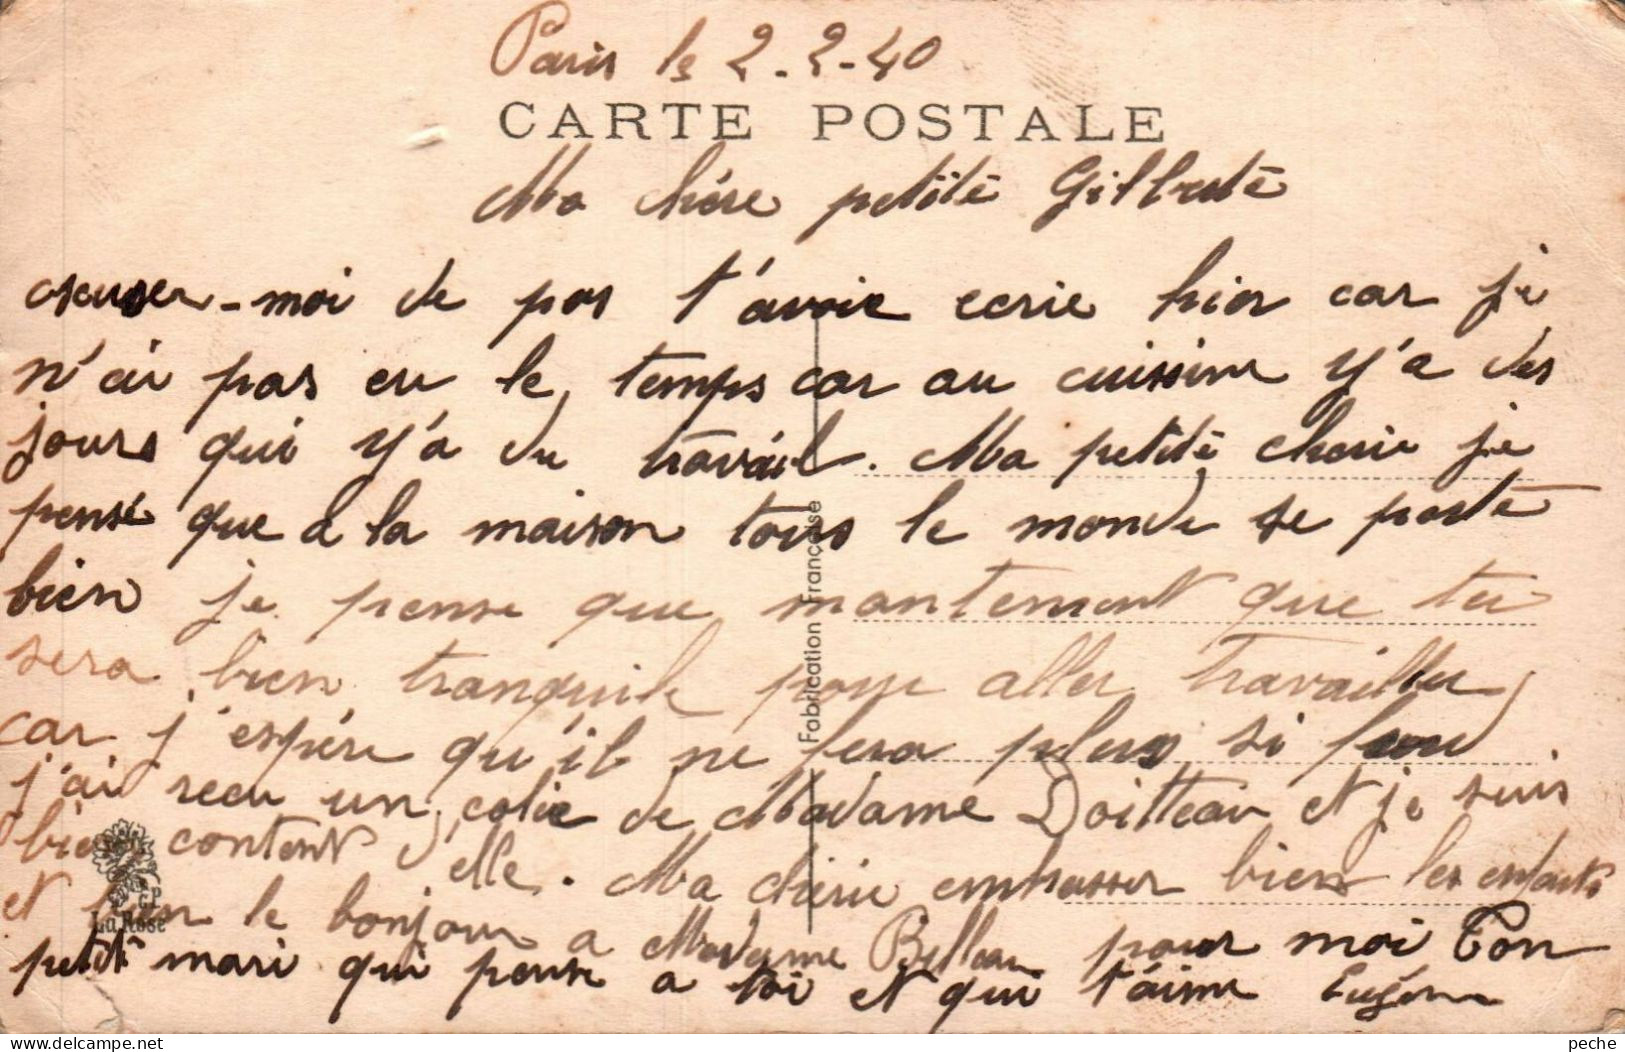 Paris le 2.2-40
CARTE POSTALE
Ma chére petite Gilberte
excuser-moi de pas t'avoir ecrie hier car je
n'ai pas eu le temps car au cuissine y'a des
jours qui y'a du travail. Ma petite cherie je
pense que a la maison tous le monde se porte
bien je pense que mantement que tu
sera bien tranquile pour aller travailler
car j'espére qu'il ne fera plus si froid
j'ai recu un colie de Madame Doitteau et je suis
bien content d'elle. Ma cherie embrasser bien les enfants
et bien le bonjour a Madame Belleau pour moi Ton
petit mari qui pense a toi et qui t'aime Eugéne
Fabrication Française
GP
La Rose
peche